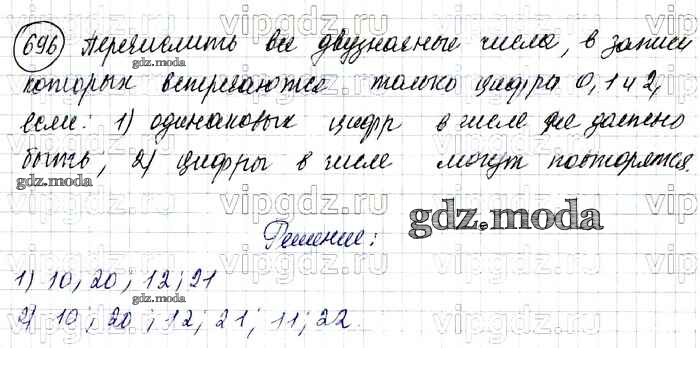 696 Перечислить все двузначные числа, в записи
которых встречаются только цифра 0, 1 и 2,
если: 1) одинаковых цифр в числе не должно
быть; 2) цифры в числе могут повторяться.
Решение:
1) 10; 20; 12; 21
2) 10; 20; 12; 21; 11; 22.
gdz.moda
gdz.moda
gdz.moda
gdz.moda
vipgdz.ru